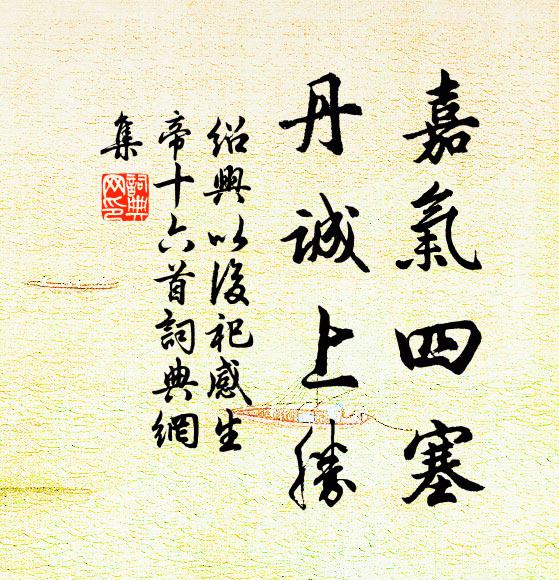 嘉氣四塞
丹誠上勝
紹興以後祀感生
帝十六首詞典網
集
詞典
网印